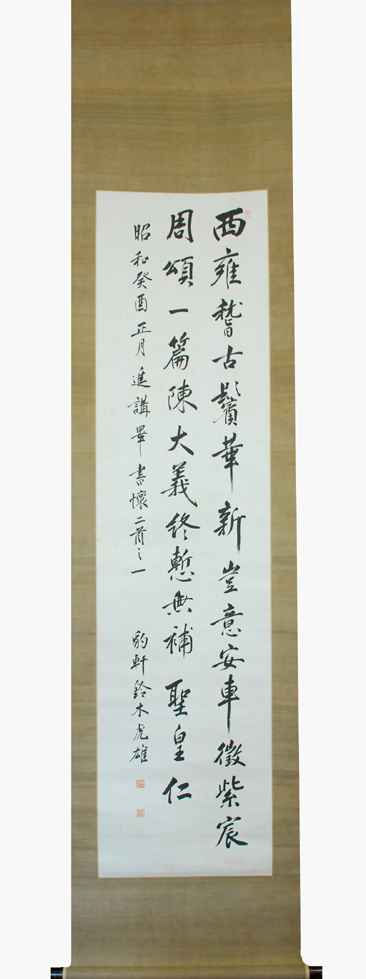 西雍稽古鬢華新豈意安車徵紫宸
周頌一篇陳大義終慙無補聖皇仁
昭和癸酉正月進講畢書懷二首之一
豹軒鈴木虎雄